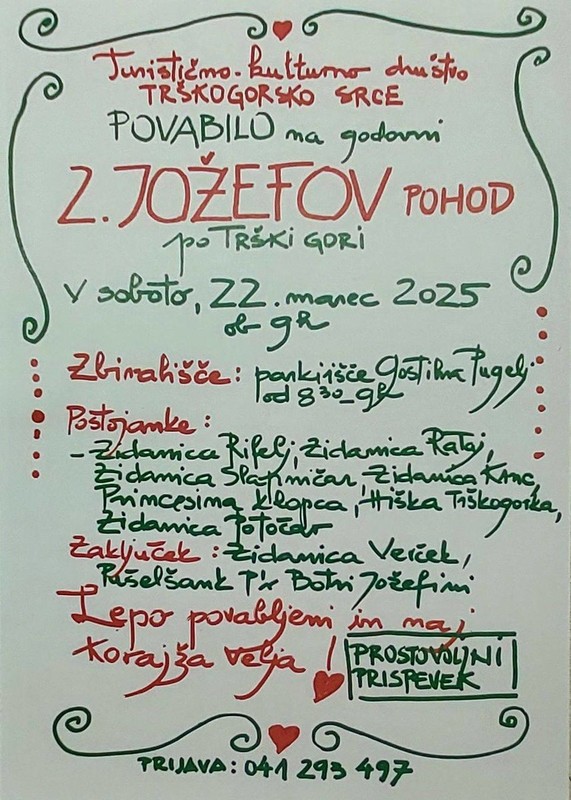 Turistično-kulturno društvo
TRŠKOGORSKO SRCE
POVABILO na godovni
2. JOŽEFOV POHOD
po TRŠKI GORI
V soboto, 22. marec 2025
ob 9h
Zbirališče: parkirišče Gostilna Pugelj
od 8 30 - 9h
Postojanke:
- Zidanica Rifelj, Zidanica Rataj,
Zidanica Slapničar, Zidanica Kinc,
Princesina klopca, Hiška Trškogorka,
Zidanica Potočar
Zaključek: Zidanica Verček,
Pušelšank P'r Botri Jožefini
Lepo povabljeni in naj
korajža velja!
PROSTOVOLJNI
PRISPEVEK
PRIJAVA: 041 293 497